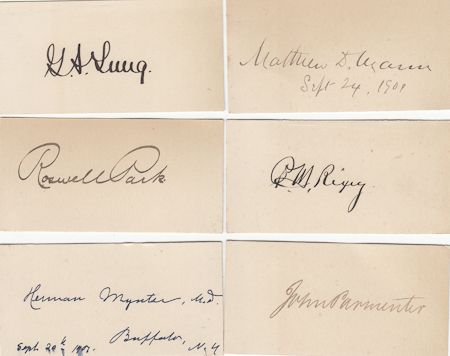 G. A. Lung.
Matthew D. Mann
Sept 24, 1901
Roswell Park
P. M. Rixey.
Herman Mynter, M.D.
Sept. 29th 1901. Buffalo, N.Y
John Parmenter